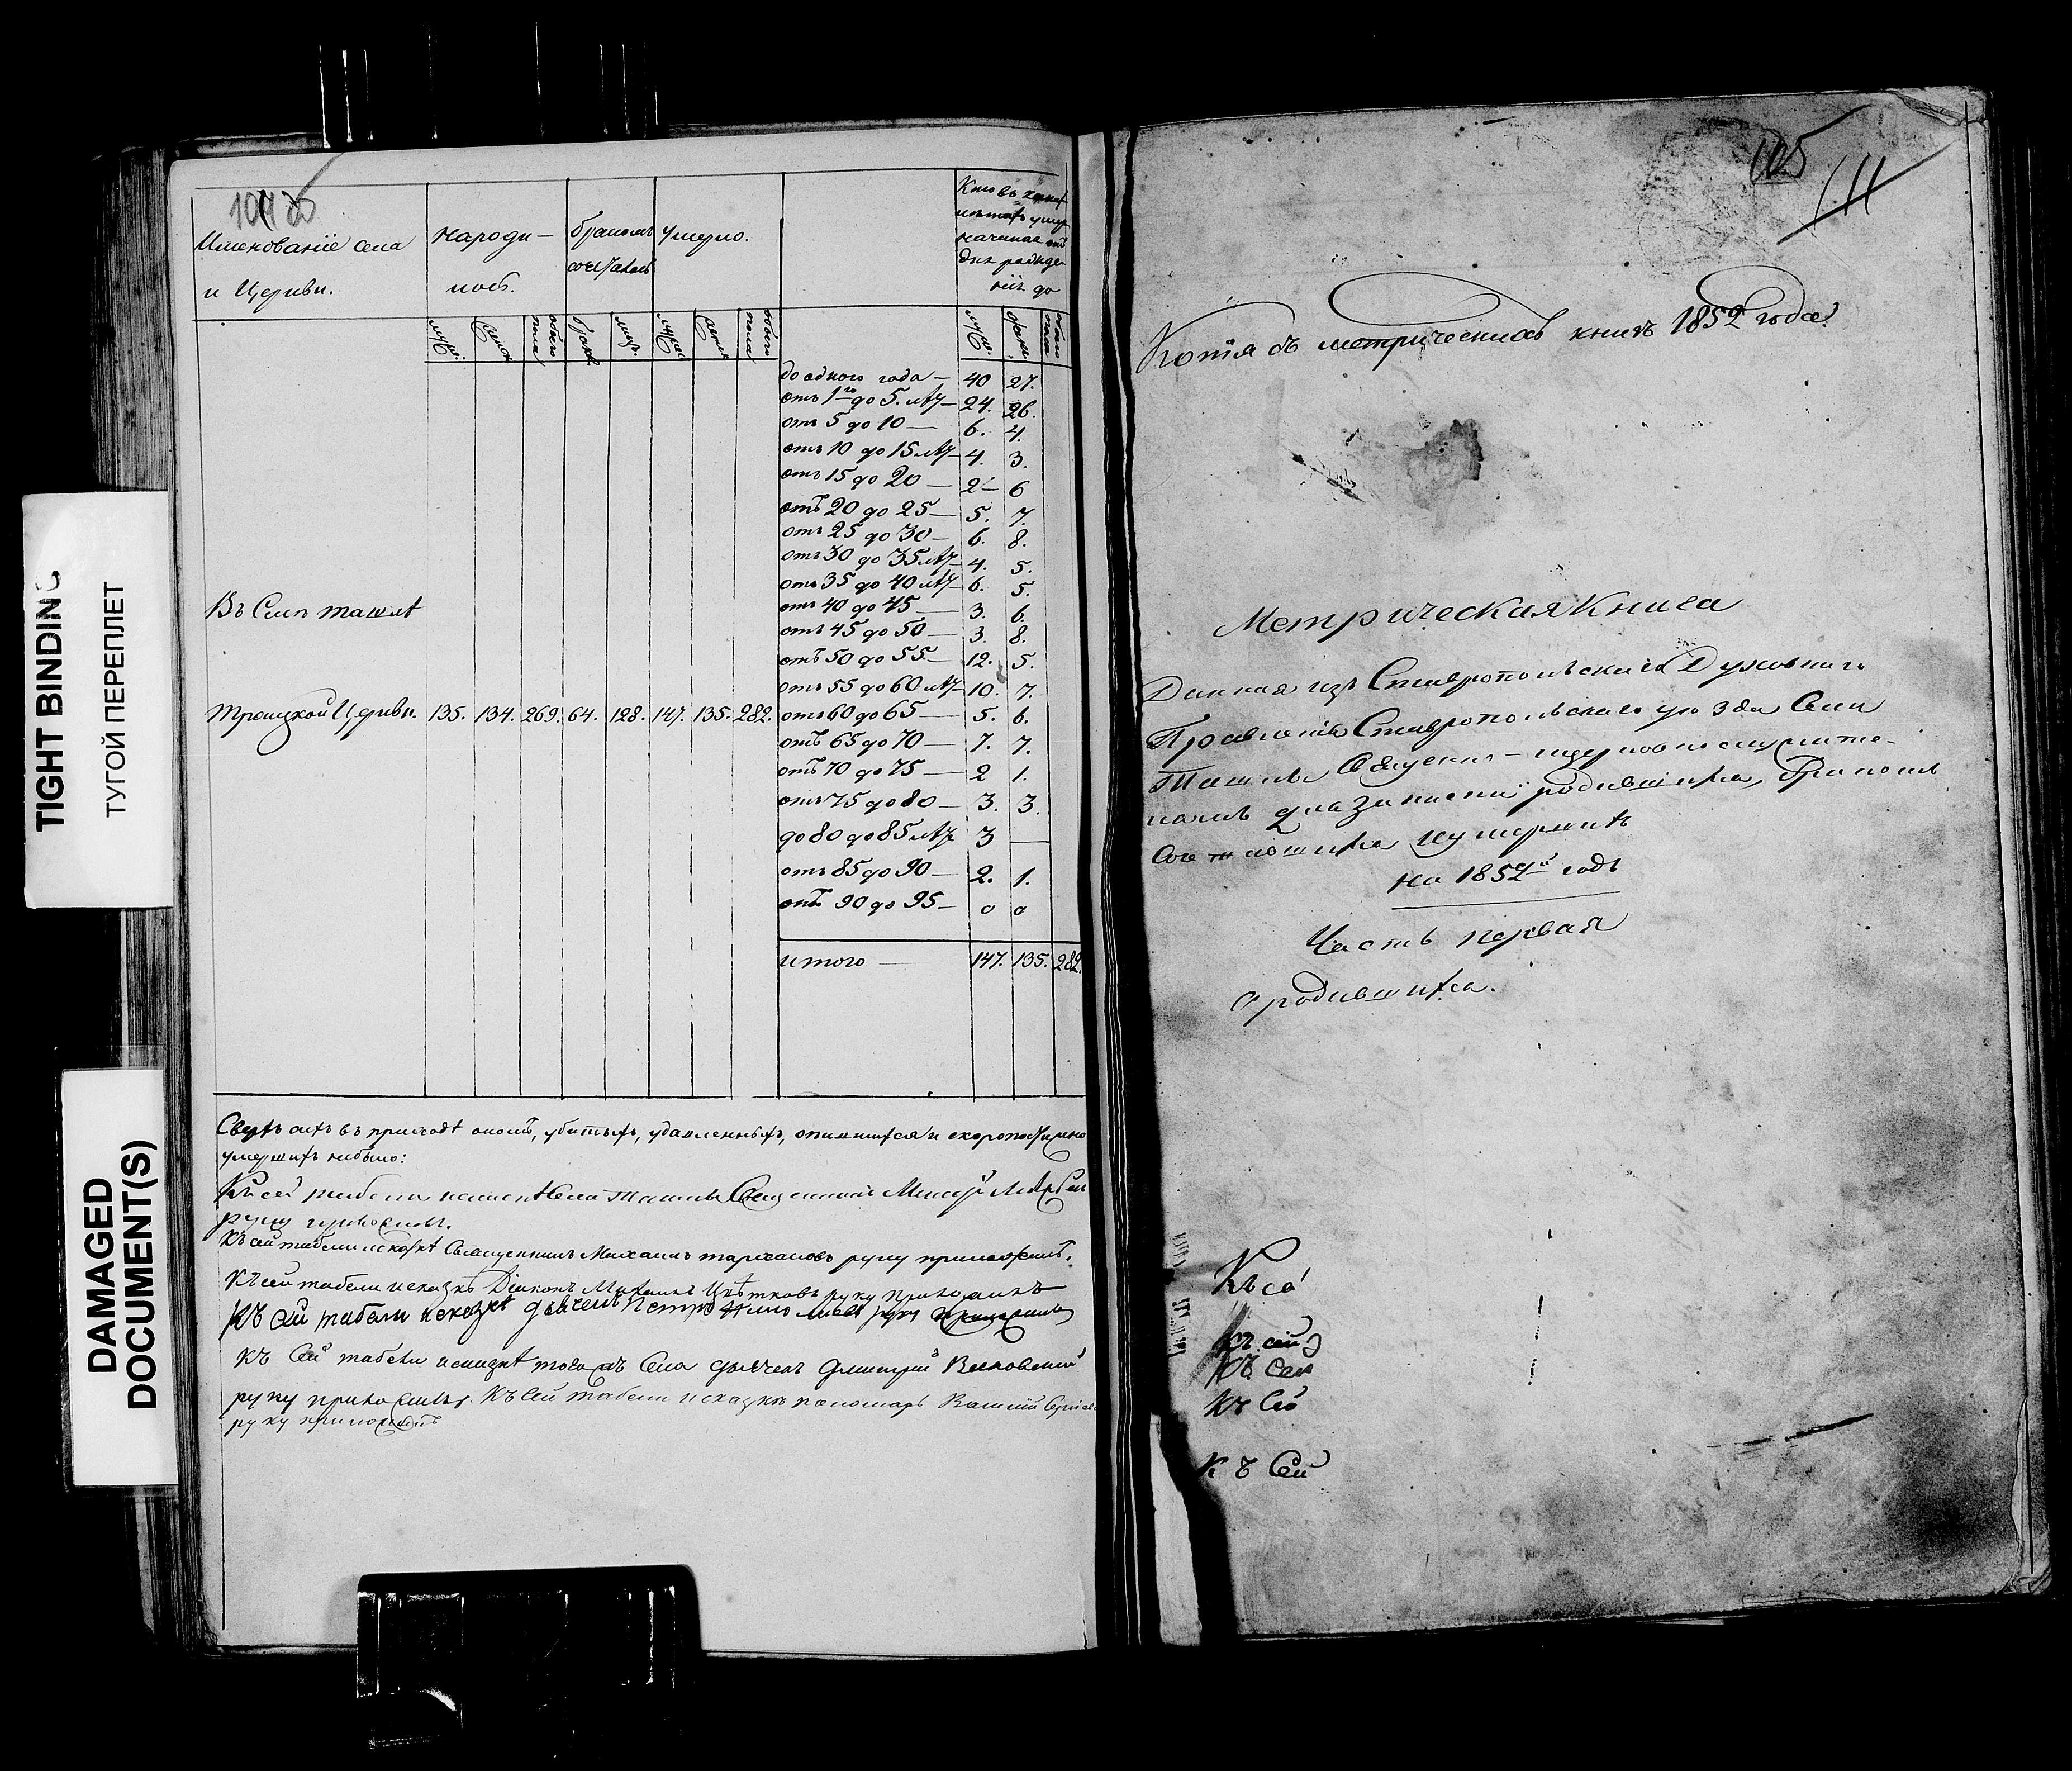 TIGHT BINDING
ТУГОЙ ПЕРЕПЛЕТ
DAMAGED
DOCUMENT(S)
Именованіе села
и Церкви.
Народи-
лось.
бракомъ
сочеталось
Умерло.
начиная отъ
дня рожде-
нія до
муж. женск. обоего пола браковъ муж. женск. обоего пола
муж. женск. обоего пола
до одного года — 40 27.
отъ 1го до 5. лѣт — 24. 26.
отъ 5 до 10 — 6. 4.
отъ 10 до 15 лѣт — 4. 3.
отъ 15 до 20 — 2 6
отъ 20 до 25 — 5. 7.
отъ 25 до 30 — 6. 8.
отъ 30 до 35 лѣт — 4. 5.
отъ 35 до 40 лѣт — 6. 5.
отъ 40 до 45 — 3. 6.
отъ 45 до 50 — 3. 8.
отъ 50 до 55 — 12. 5.
отъ 55 до 60 лѣт — 10. 7.
Въ Селѣ ташлѣ
Троицкой Церкви. 135. 134. 269. 64. 128. 147. 135. 282. отъ 60 до 65 — 5. 6.
отъ 65 до 70 — 7. 7.
отъ 70 до 75 — 2 1.
отъ 75 до 80 — 3. 3.
до 80 до 85 лѣт 3 —
отъ 85 до 90 — 2. 1.
отъ 90 до 95 — 0 0
итого — 147. 135. 282.
Сверхъ сихъ въ приходѣ оныхъ, убитыхъ, удавленныхъ, опившихся и скоропостижно
умершихъ небыло:
Къ сей табели села Ташлы Священникъ
руку приложилъ.
Къ сей табели исказкѣ Священникъ Михаилъ тархановъ руку приложилъ.
Къ сей табели исказкѣ Діаконъ Михаилъ Цвѣтковъ руку приложилъ
Къ сей табели исказкѣ дьячекъ Петръ руку приложилъ
Къ Сей табели исказкѣ тогожъ Села дьячекъ Дмитрій
руку приложилъ. Къ Сей табели исказкѣ пономарь
руку приложилъ
105
111
Копія съ метрическихъ книгъ 1852 года.
Метрическая Книга
Данная изъ Ставропольскаго Духовнаго
Правленія Ставропольскаго уѣзда Села
Ташлы Священно-церковнослужите-
лямъ для записки родившихся, Бракомъ
Сочетавшихся и умершихъ
на 1852й годъ
Часть первая
О родившихся.
Къ се
Къ сей
Къ сей
Къ Сей
Къ Сей